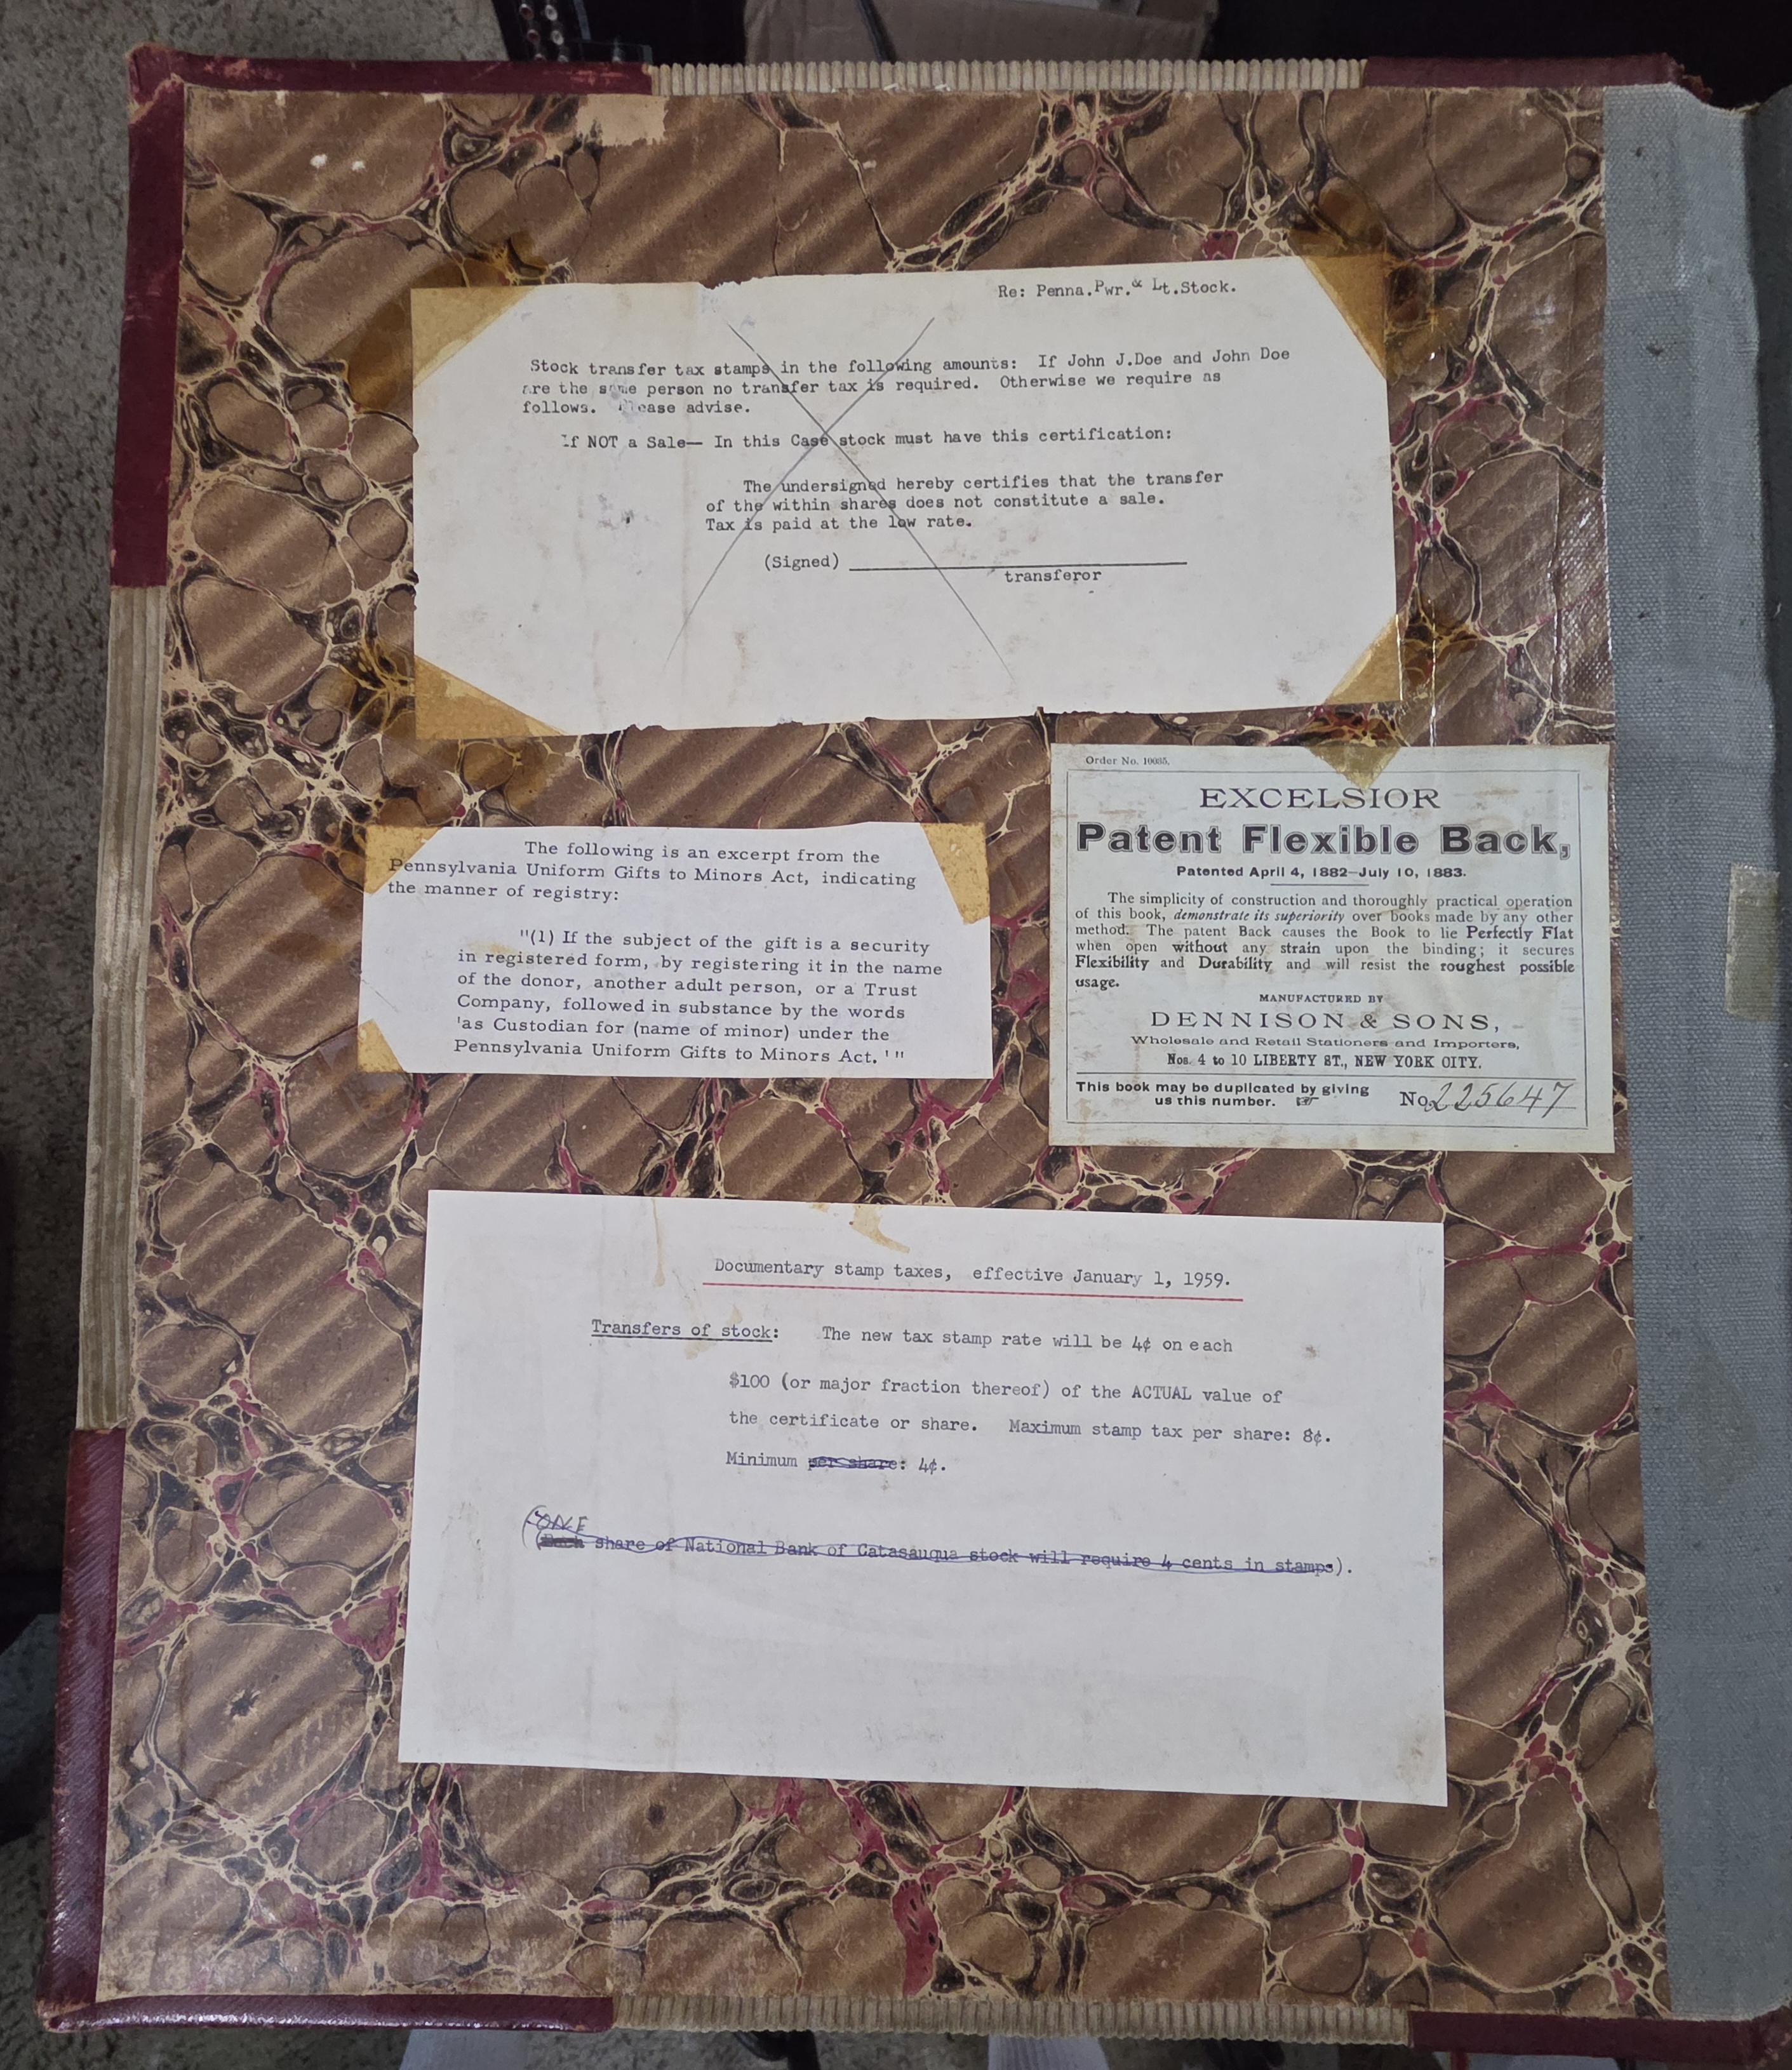 Re: Penna.Pwr.& Lt.Stock.
Stock transfer tax stamps in the following amounts: If John J.Doe and John Doe
are the same person no transfer tax is required. Otherwise we require as
follows. Please advise.
If NOT a Sale— In this Case stock must have this certification:
The undersigned hereby certifies that the transfer
of the within shares does not constitute a sale.
Tax is paid at the low rate.
(Signed)
transferor
Order No. 10035.
EXCELSIOR
Patent Flexible Back,
Patented April 4, 1882—July 10, 1883.
The simplicity of construction and thoroughly practical operation
of this book, demonstrate its superiority over books made by any other
method. The patent Back causes the Book to lie Perfectly Flat
when open without any strain upon the binding; it secures
Flexibility and Durability and will resist the roughest possible
usage.
MANUFACTURED BY
DENNISON & SONS,
Wholesale and Retail Stationers and Importers,
Nos. 4 to 10 LIBERTY ST., NEW YORK CITY.
This book may be duplicated by giving
us this number. No. 225647
The following is an excerpt from the
Pennsylvania Uniform Gifts to Minors Act, indicating
the manner of registry:
"(1) If the subject of the gift is a security
in registered form, by registering it in the name
of the donor, another adult person, or a Trust
Company, followed in substance by the words
'as Custodian for (name of minor) under the
Pennsylvania Uniform Gifts to Minors Act.'"
Documentary stamp taxes, effective January 1, 1959.
Transfers of stock: The new tax stamp rate will be 4¢ on each
$100 (or major fraction thereof) of the ACTUAL value of
the certificate or share. Maximum stamp tax per share: 8¢.
Minimum per share: 4¢.
(ONE
(Each share of National Bank of Catasauqua stock will require 4 cents in stamps).